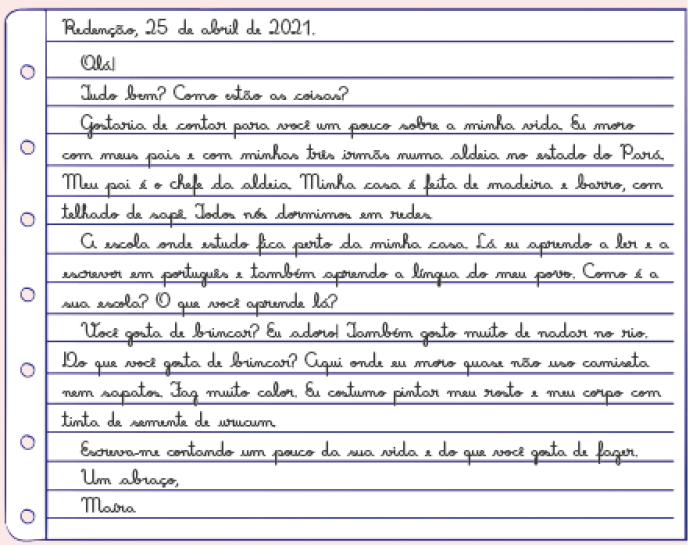 Redenção, 25 de abril de 2021.
Olá!
Tudo bem? Como estão as coisas?
Gostaria de contar para você um pouco sobre a minha vida. Eu moro
com meus pais e com minhas três irmãs numa aldeia no estado do Pará.
Meu pai é o chefe da aldeia. Minha casa é feita de madeira e barro, com
telhado de sapê. Todos nós dormimos em redes.
A escola onde estudo fica perto da minha casa. Lá eu aprendo a ler e a
escrever em português e também aprendo a língua do meu povo. Como é a
sua escola? O que você aprende lá?
Você gosta de brincar? Eu adoro! Também gosto muito de nadar no rio.
Do que você gosta de brincar? Aqui onde eu moro quase não uso camiseta
nem sapatos. Faz muito calor. Eu costumo pintar meu rosto e meu corpo com
tinta de semente de urucum.
Escreva-me contando um pouco da sua vida e do que você gosta de fazer.
Um abraço,
Maíra